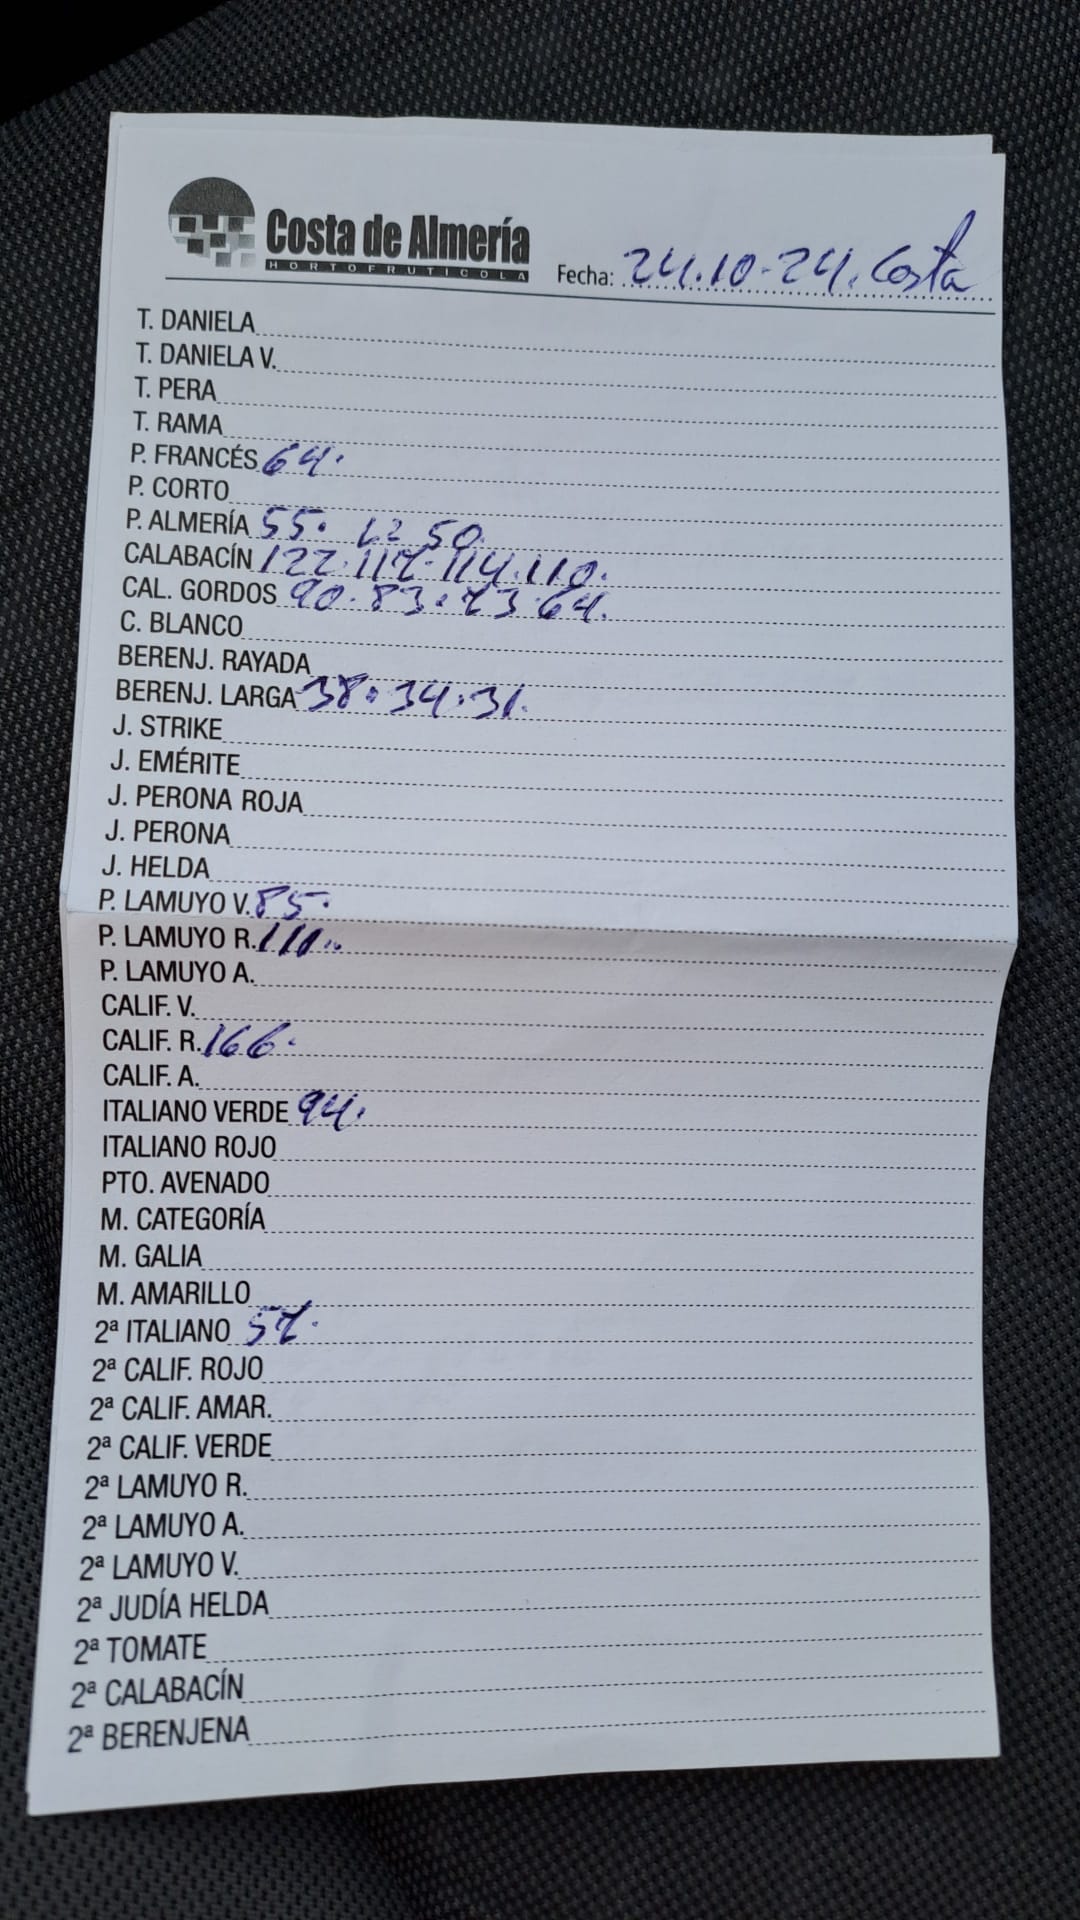 Costa de Almería
HORTOFRUTICOLA
Fecha: 24.10-24. Costa
T. DANIELA
T. DANIELA V.
T. PERA
T. RAMA
P. FRANCÉS 64.
P. CORTO
P. ALMERÍA 55. 50.
CALABACÍN 122.117.114.110.
CAL. GORDOS 90.83.73.64.
C. BLANCO
BERENJ. RAYADA
BERENJ. LARGA 38.34.31.
J. STRIKE
J. EMÉRITE
J. PERONA ROJA
J. PERONA
J. HELDA
P. LAMUYO V. 85.
P. LAMUYO R. 111..
P. LAMUYO A.
CALIF. V.
CALIF. R. 166.
CALIF. A.
ITALIANO VERDE 94.
ITALIANO ROJO
PTO. AVENADO
M. CATEGORÍA
M. GALIA
M. AMARILLO
2ª ITALIANO 57.
2ª CALIF. ROJO
2ª CALIF. AMAR.
2ª CALIF. VERDE
2ª LAMUYO R.
2ª LAMUYO A.
2ª LAMUYO V.
2ª JUDÍA HELDA
2ª TOMATE
2ª CALABACÍN
2ª BERENJENA